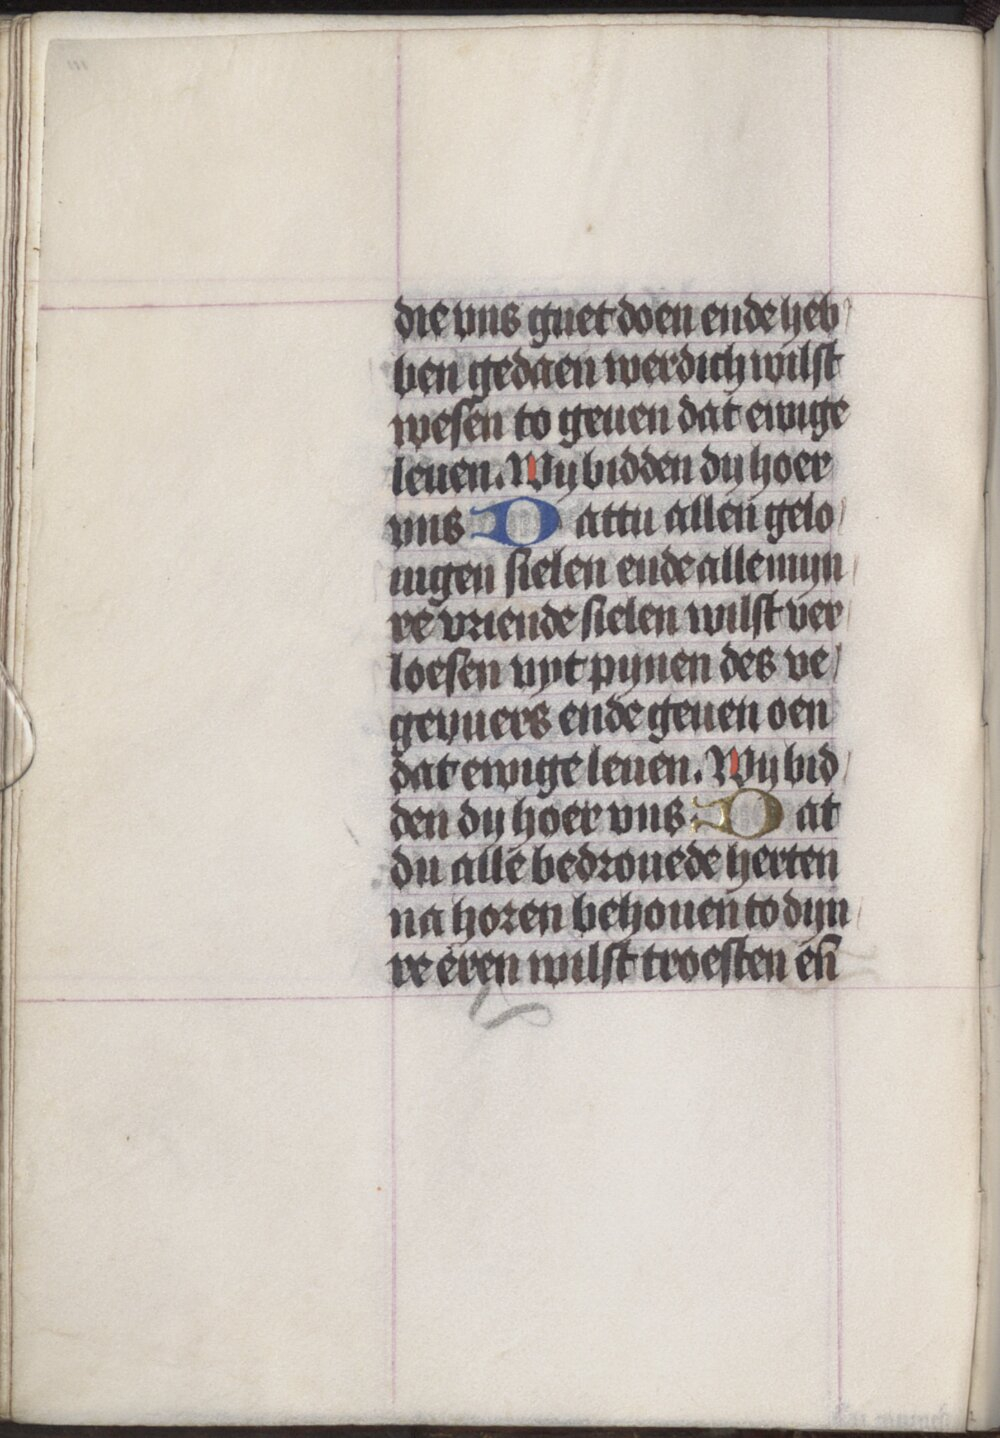 die vns guet doen ende heb
ben gedaen werdich wilst
wesen to geuen dat ewige
leuen. Wy bidden dy hoer
vns Dattu allen gelo
uigen sielen ende alle myn
re vriende sielen wilst ver
loesen vyt pynen des ve
geyuers ende geuen oen
dat ewige leuen. Wy bid
den dy hoer vns. Dat
du allē bedrouede herten
na horen behouen to dyn
re eren wilst troesten en̄